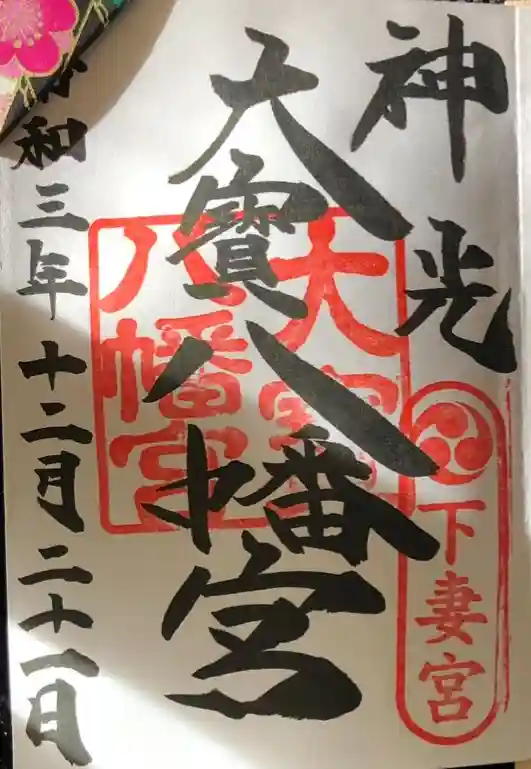 神光
下妻宮
大寳八幡宮
大寳八幡宮
令和三年十二月二十一日